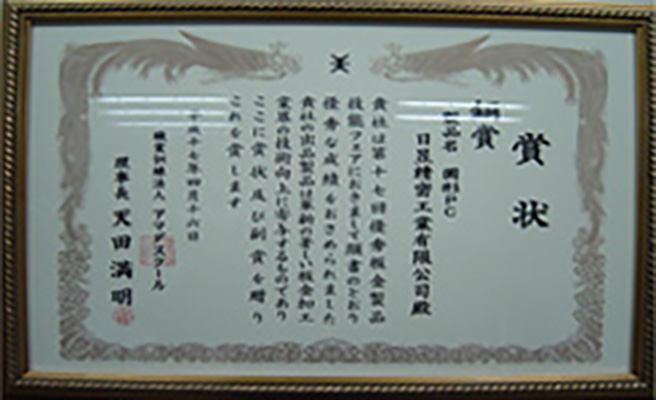 賞状
賞
製品名 PC
日昱精密工業有限公司殿
貴社は第十七回優秀板金製品
技能フェアにおきまして頭書のとおり
優秀な成績をおさめられました
貴社の出品製品は革新の著しい板金加工
業界の技術向上に寄与するものであり
ここに賞状及び副賞を贈り
これを賞します
平成十七年四月十六日
職業訓練法人 アマダスクール
理事長 天田満明